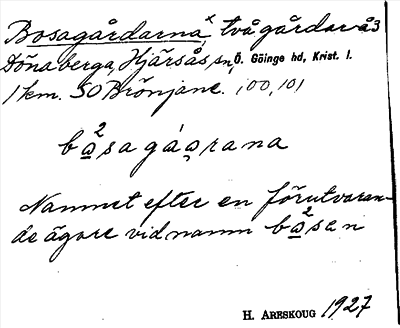 Bosagårdarna,× två gårdar å3
Göna berga, Hjärsås sn, Ö. Göinge hd, Krist. l.
1 km. SO Brönjane. 100, 101
bo̲²sagáarana
Namnet efter en förutvaran-
de ägare vid namn bo̲²san
H. ARESKOUG 1927